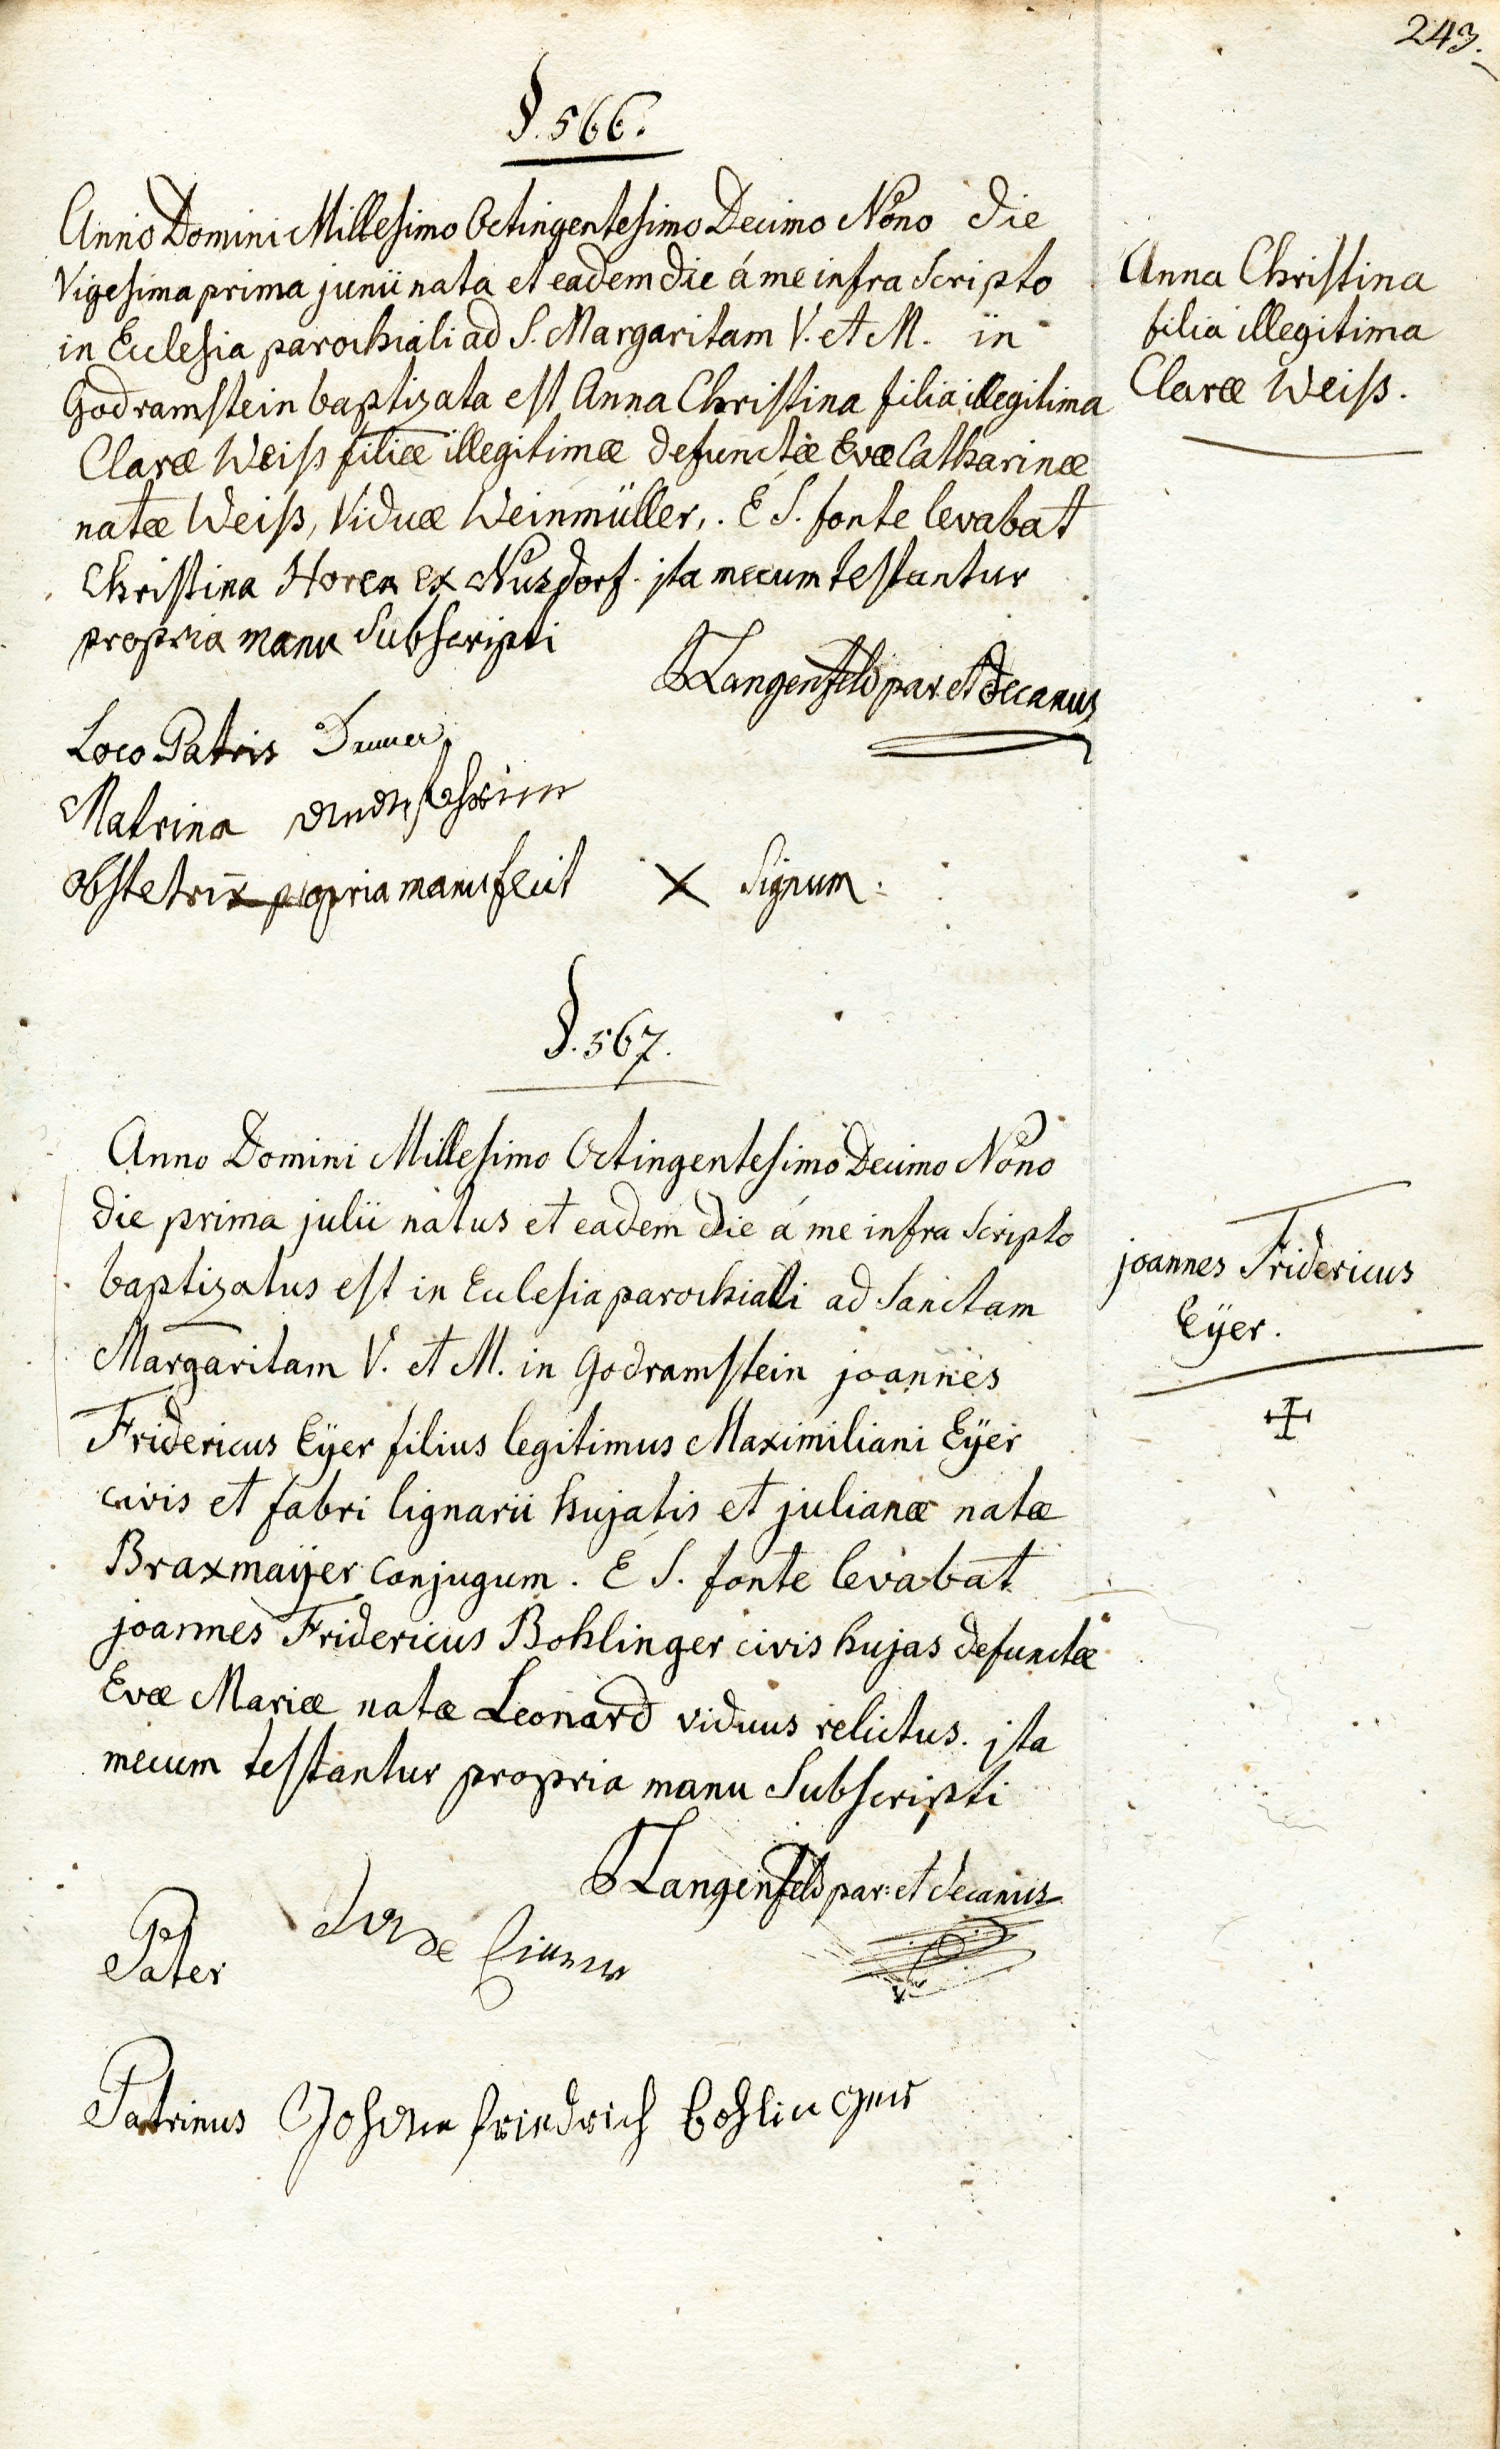 243.
§. 566.
Anno Domini Millesimo Octingentesimo Decimo Nono die
Vigesima prima junii nata et eadem die á me infra Scripto
in Ecclesia parochiali ad S. Margaritam V. et M. in
Godramstein baptizata est Anna Christina filia illegitima
Claræ Weiß filiæ illegitimæ defunctæ Evæ Catharinæ
natæ Weiß, Viduæ Weinmüller,. E S. fonte levabat
Christina Horer ex Nusdorf. jta mecum testantur
propria manu Subscripti
Langenfeld par. et decanus
Loco Patris
Matrina
obstetrix propria manu fecit X Signum.
Anna Christina
filia illegitima
Claræ Weiß.
§. 567.
Anno Domini Millesimo Octingentesimo Decimo Nono
die prima julii natus et eadem die á me infra Scripto
baptizatus est in Ecclesia parochiali ad Sanctam
Margaritam V. et M. in Godramstein joannes
Fridericus Eÿer filius legitimus Maximiliani Eÿer
civis et fabri lignarii hujatis et julianæ natæ
Braxmaÿer Conjugum. E S. fonte levabat
joannes Fridericus Bohlinger civis hujas defunctæ
Evæ Mariæ natæ Leonard viduus relictus. jta
mecum testantur propria manu Subscripti
Langenfeld par: et decanus
Pater
Patrinus Johann friedrich bohlinger
joannes Fridericus
Eÿer.